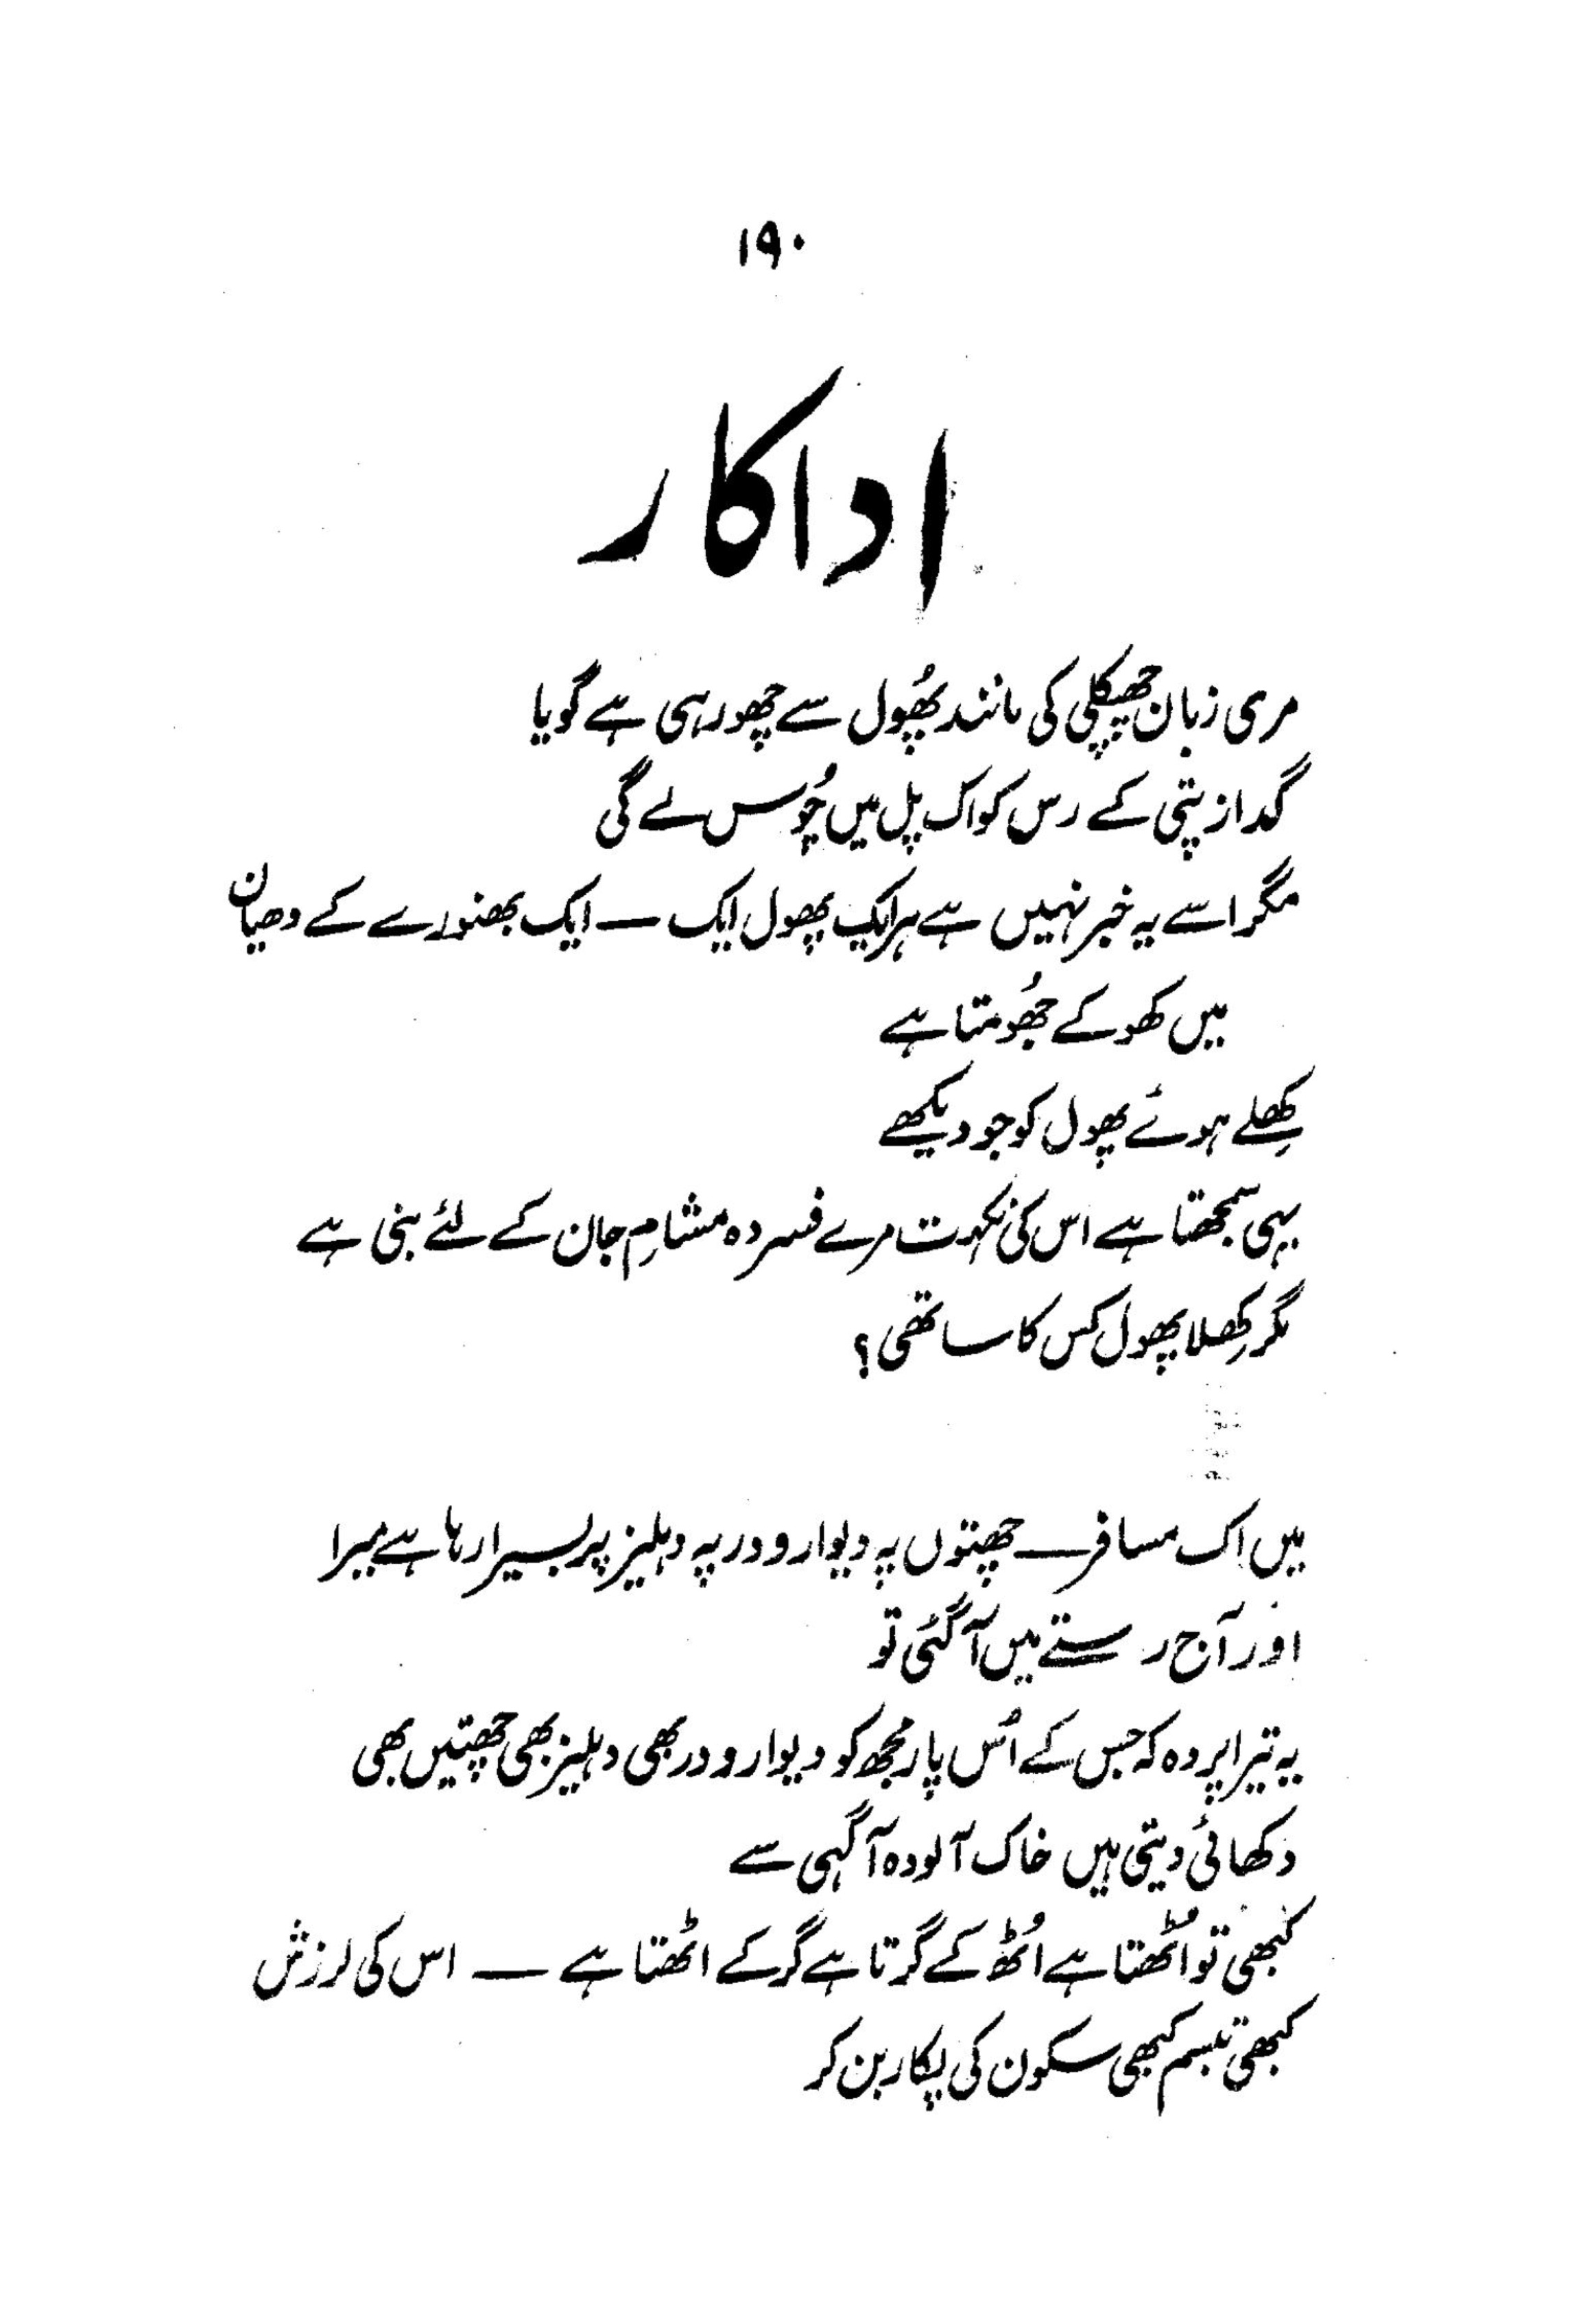 ۱۹۰
اداکار
مری زبان چھپکلی کی مانند پھُول سے چھو رہی ہے گویا
گداز پتی کے رس کو اک پل میں چُوس لے گی
مگر اسے یہ خبر نہیں ہے ہر ایک پھول ایک — ایک بھنورے کے دھیان
میں کھو کے جھُومتا ہے
کِھلے ہوئے پھول کو جو دیکھے
یہی سمجھتا ہے اس کی نکہت مرے فسردہ مشامِ جان کے لئے بنی ہے
مگر کِھلا پھول کس کا ساتھی؟
میں اک مسافر — چھتوں پہ دیوار و در پہ دہلیز پر بسیرا رہا ہے میرا
اور آج رستے میں آ گئی تو
یہ تیرا پردہ کہ جس کے اُس پار مجھ کو دیوار و در بھی دہلیز بھی چھتیں بھی
دکھائی دیتی ہیں خاک آلودہ آگہی سے
کبھی تو اُٹھتا ہے اُٹھ کے گرتا ہے گر کے اٹھتا ہے — اس کی لرزش
کبھی تبسم کبھی سکون کی پکار بن کر